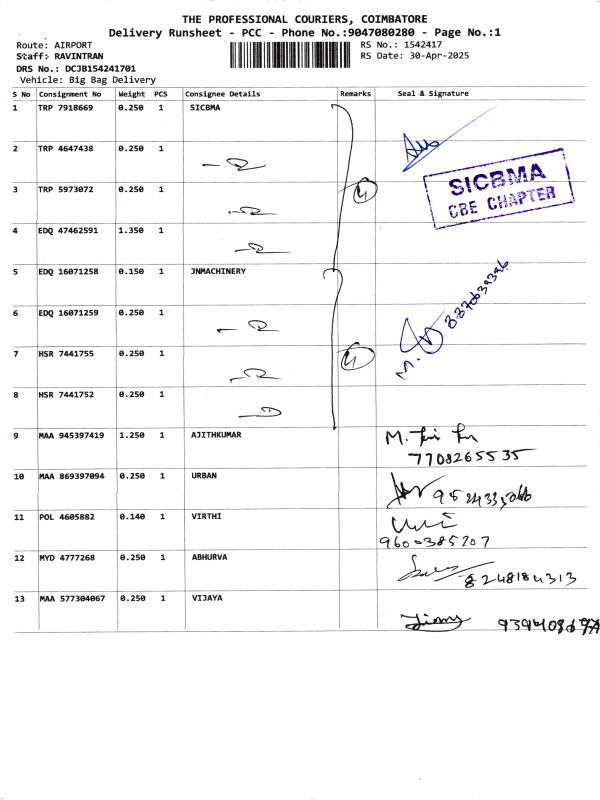 THE PROFESSIONAL COURIERS, COIMBATORE
Delivery Runsheet - PCC - Phone No.:9047080280 - Page No.:1
Route: AIRPORT RS No.: 1542417
Staff: RAVINTRAN RS Date: 30-Apr-2025
DRS No.: DCJB154241701
Vehicle: Big Bag Delivery
S No Consignment No Weight PCS Consignee Details Remarks Seal & Signature
1 TRP 7918669 0.250 1 SICBMA
2 TRP 4647438 0.250 1
3 TRP 5973072 0.250 1 4
SICBMA
CBE CHAPTER
4 EDQ 47462591 1.350 1
5 EDQ 16071258 0.150 1 JNMACHINERY
6 EDQ 16071259 0.250 1
7 HSR 7441755 0.250 1 4
8 HSR 7441752 0.250 1
9 MAA 945397419 1.250 1 AJITHKUMAR
7708265535
10 MAA 869397094 0.250 1 URBAN
11 POL 4605882 0.140 1 VIRTHI
9600385207
12 MYD 4777268 0.250 1 ABHURVA
8248184313
13 MAA 577304067 0.250 1 VIJAYA